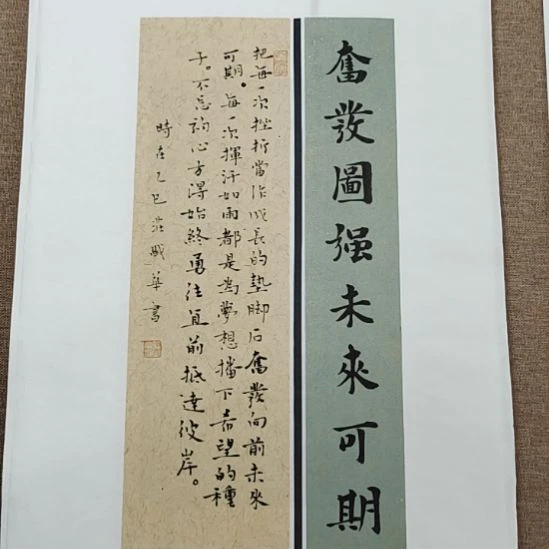 奮發圖强未來可期
把每一次挫折當作成長的墊脚石奮發向前未來
可期。每一次揮汗如雨都是爲夢想播下希望的種
子。不忘初心方得始終勇往直前抵達彼岸。
時在乙巳莊賊華書